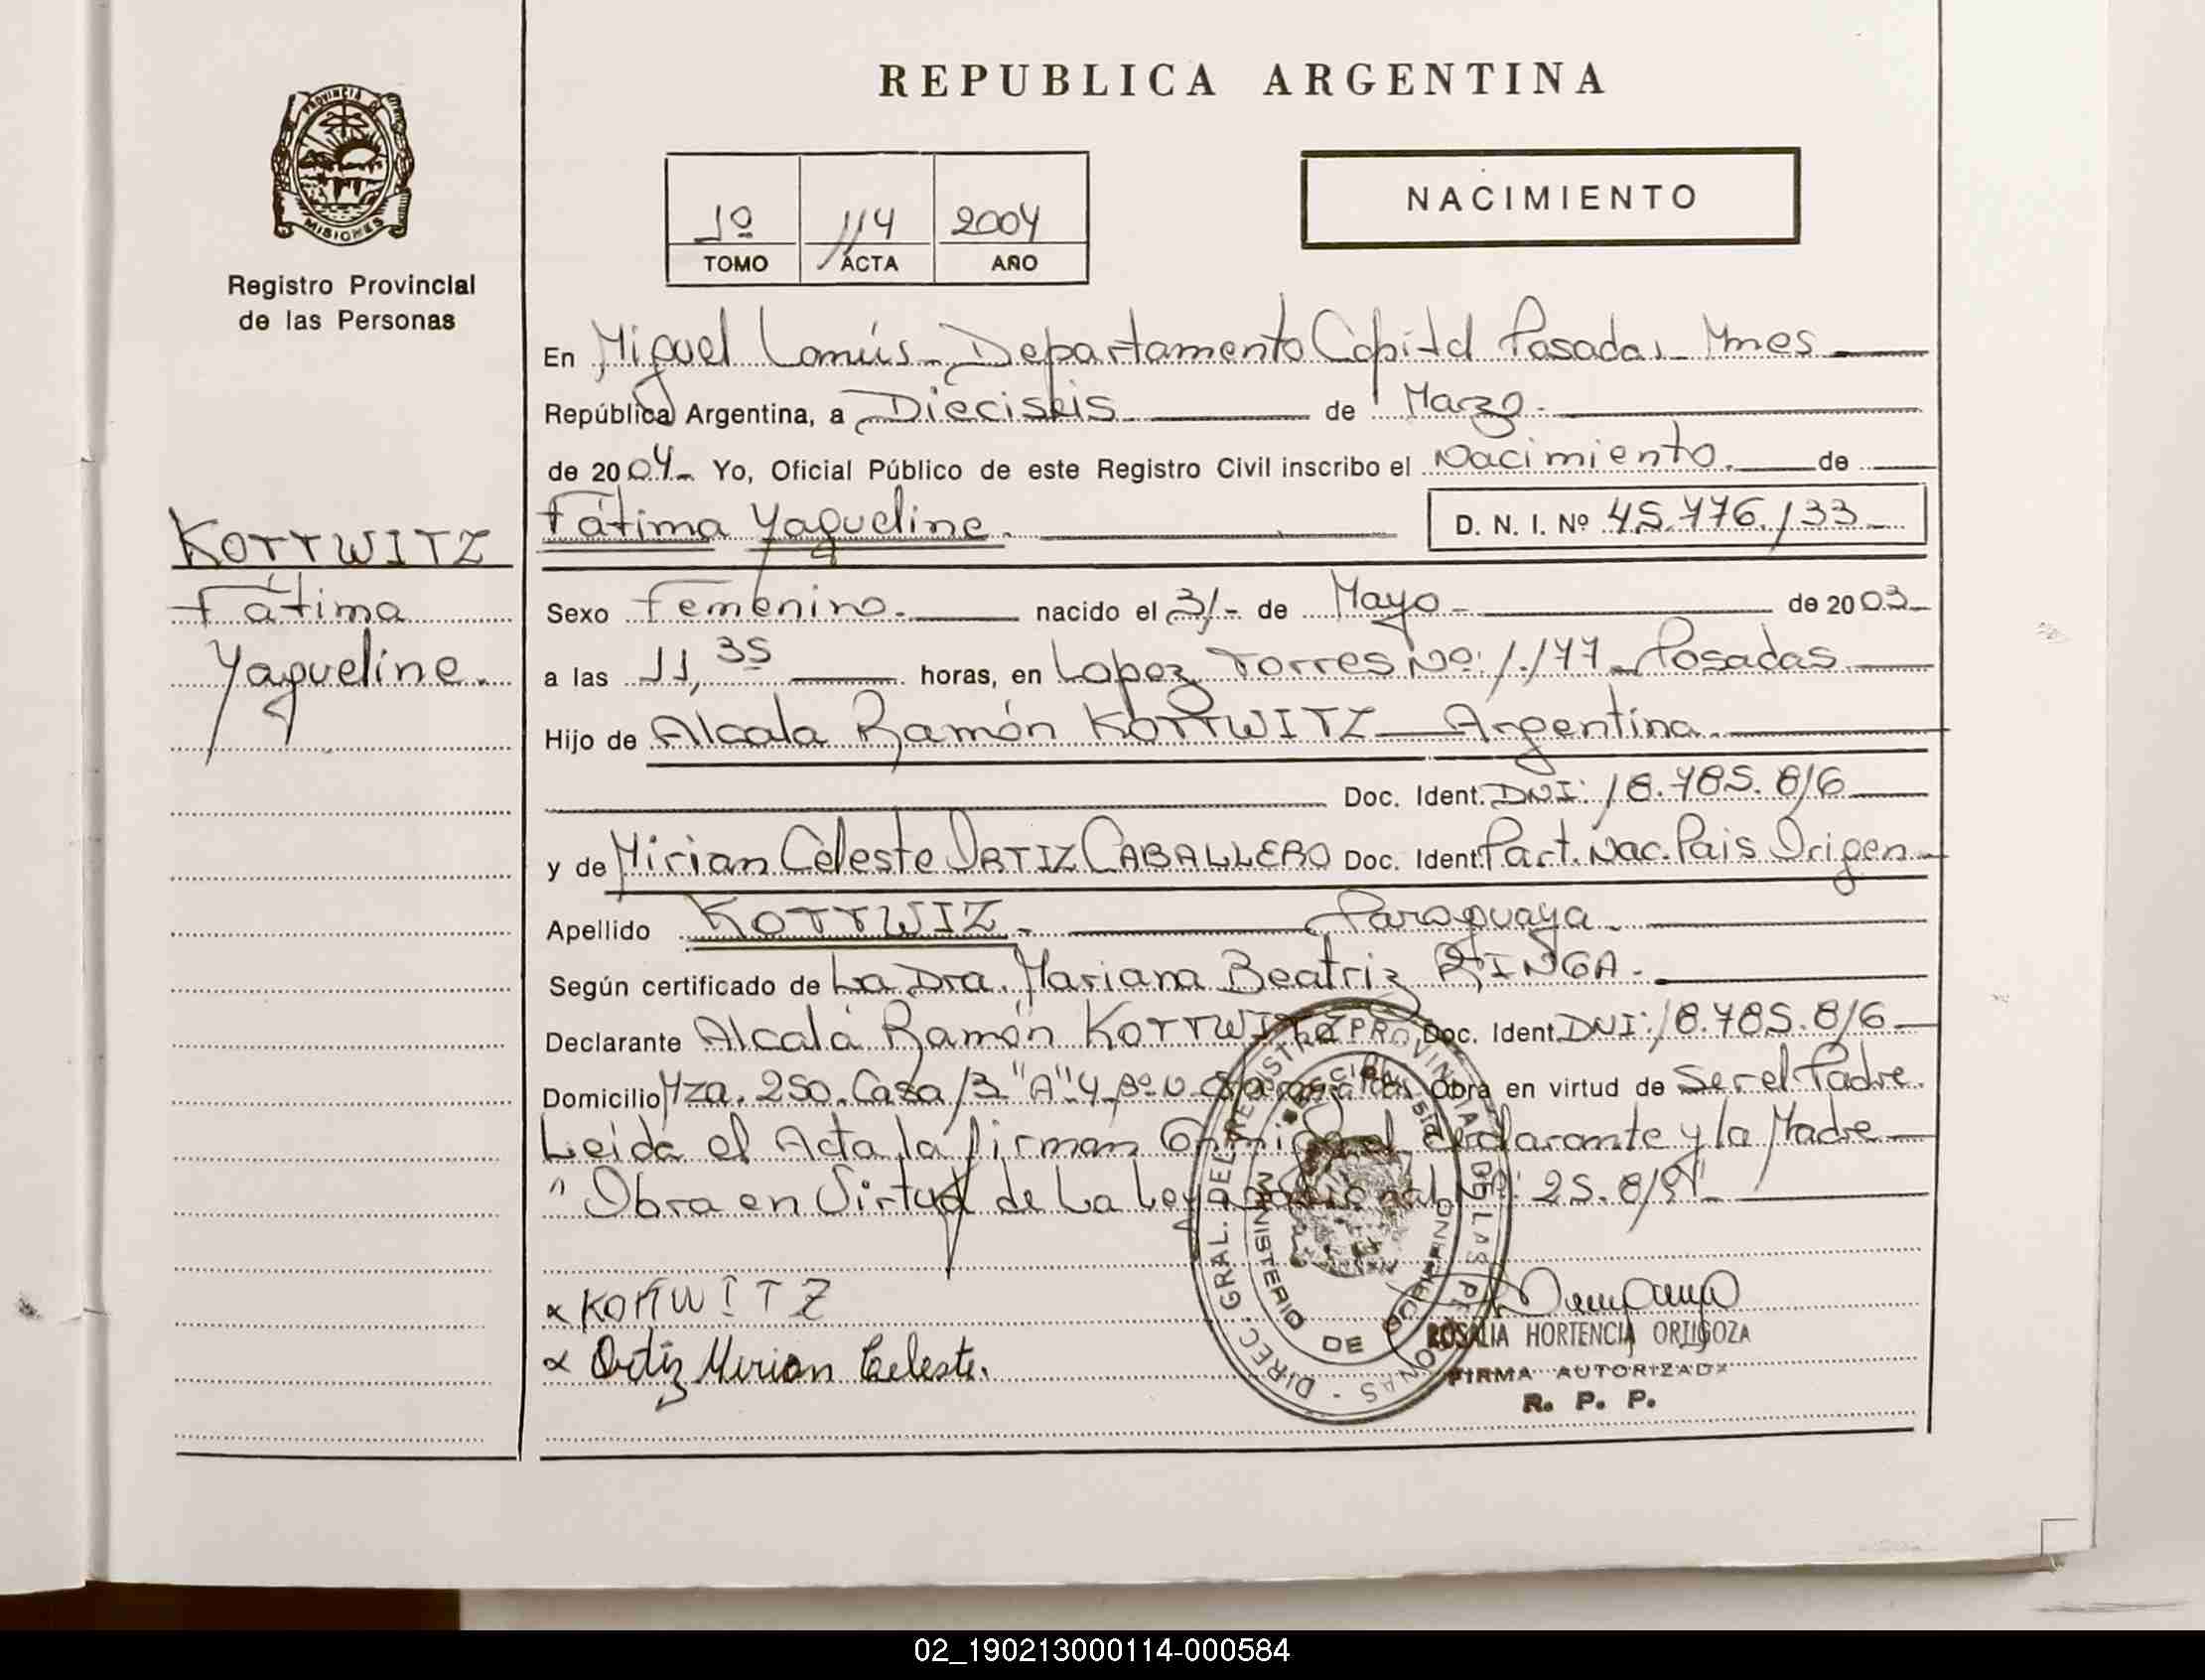 REPUBLICA ARGENTINA
PROVINCIA D
MISIONES
Registro Provincial
de las Personas
1º 114 2004
TOMO ACTA AÑO
NACIMIENTO
En Miguel Lanús - Departamento Capital Posadas - Mnes
República Argentina, a Dieciseis de Marzo.
de 2004 - Yo, Oficial Público de este Registro Civil inscribo el Nacimiento. de
Fátima Yaqueline. D. N. I. Nº 45.776.133
KOTTWITZ
Fátima
Yaqueline.
Sexo Femenino. nacido el 31 - de Mayo - de 2003
a las 11,35 horas, en Lopez Torres Nº: 1.177 - Posadas
Hijo de Alcala Ramón KOTTWITZ - Argentina.
Doc. Ident. DNI: 18.785.816
y de Mirian Celeste ORTIZ CABALLERO Doc. Ident. Part. Nac. Pais Origen
Apellido KOTTWIZ. Paraguaya.
Según certificado de La Dra. Mariana Beatriz RINGA.
Declarante Alcalá Ramón KOTTWITZ Doc. Ident. DNI: 18.785.816
Domicilio Mza. 250. Casa 13 "A" 4 Bº en virtud de Ser el Padre.
Leida el Acta la firman Conmigo el declarante y la Madre
" Obra en Virtud de La Ley Nacional Nº: 25.819"
x KOTTWITZ
x Ortiz Mirian Celeste.
DIREC. GRAL. DEL REGISTRO PROVINCIAL DE LAS PERSONAS
MINISTERIO DE GOBIERNO
ROSALIA HORTENCIA ORTIGOZA
FIRMA AUTORIZADA
R. P. P.
02_190213000114-000584